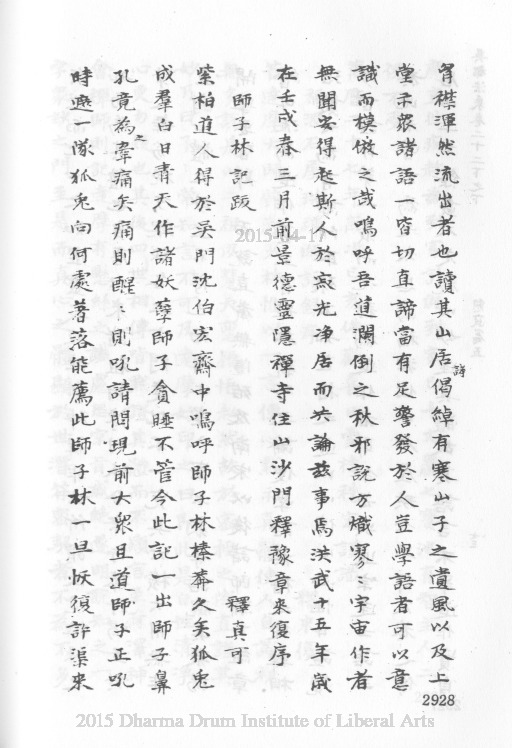 胷襟渾然流出者也讀其山居詩偈綽有寒山子之遺風以及上
堂示眾諸語一皆切直諦當有足警發於人豈學語者可以意
識而模倣之哉嗚呼吾道瀾倒之秋邪說方熾寥〻宇宙作者
無聞安得起斯人於寂光淨居而共論茲事焉洪武五年歲
在壬戌春三月前景德靈隱禪寺住山沙門釋豫章來復序
師子林記跋　釋真可
紫柏道人得於吳門沈伯宏齋中嗚呼師子林榛莽久矣狐兔
成羣白日青天作諸妖孽師子貪睡不管今此記出師子鼻
孔竟為之韋痛矣痛則醒〻則吼請問現前大眾且道師子正吼
時遮一隊狐兔向何處著落能薦此師子林一旦恢復許渠來
2928
2015-04-17
2015 Dharma Drum Institute of Liberal Arts